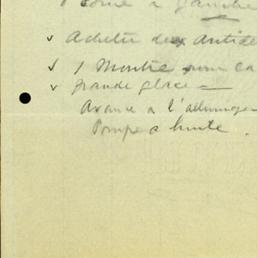 1 corne a gauche
✓ Acheter des Antide
✓ 1 Montre pour ca
✓ grande glace =
Avance a l'allumage
Pompe a huile.